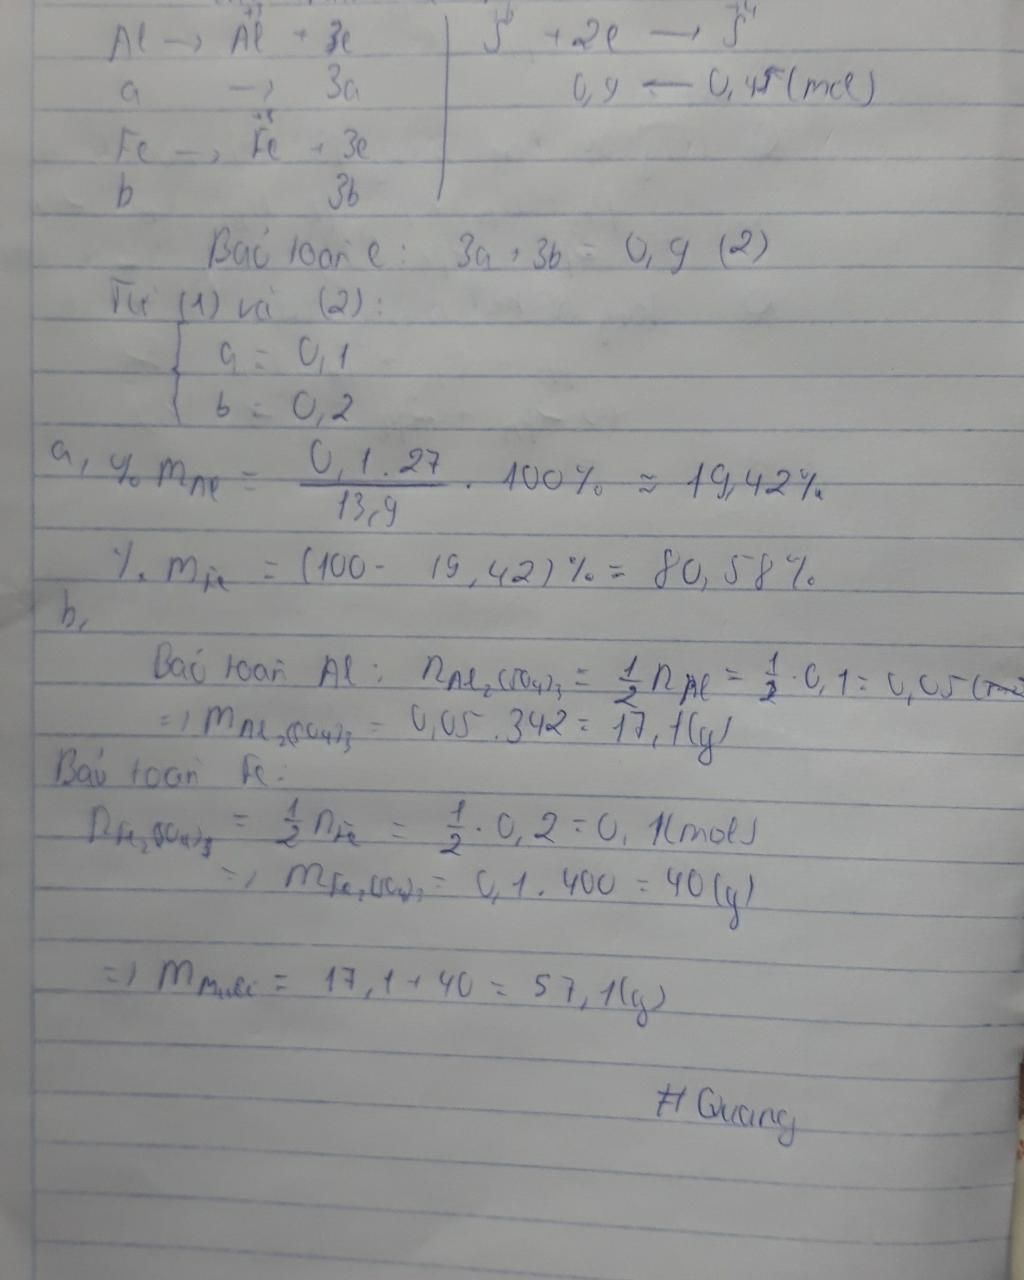 Al → Al⁺³ + 3e | S⁺⁶ + 2e → S⁺⁴
a → 3a | 0,9 ← 0,45 (mol)
Fe → Fe⁺³ + 3e
b 3b
Bảo toàn e: 3a + 3b = 0,9 (2)
Từ (1) và (2):
{ a = 0,1
{ b = 0,2
a, % mAl = 0,1.27 / 13,9 . 100% ≈ 19,42%
% mFe = (100 - 19,42)% = 80,58%
b,
Bảo toàn Al: nAl₂(SO₄)₃ = 1/2 nAl = 1/2 . 0,1 = 0,05 (mol
=> mAl₂(SO₄)₃ = 0,05 . 342 = 17,1(g)
Bảo toàn Fe:
nFe₂(SO₄)₃ = 1/2 nFe = 1/2 . 0,2 = 0,1(mol)
=> mFe₂(SO₄)₃ = 0,1 . 400 = 40(g)
=> m muối = 17,1 + 40 = 57,1(g)
# Quang